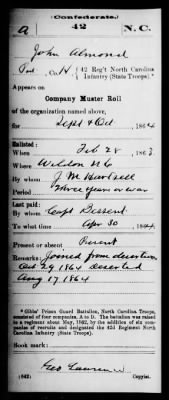 (Confederate.)
a 42 N.C.
John Almond
Pvt., Co. H, 42 Reg't North Carolina
Infantry (State Troops).*
Appears on
Company Muster Roll
of the organization named above,
for Sept & Oct, 1864
Enlisted:
When Feb 28, 1863
Where Weldon N C
By whom J. M. Hartsell
Period three years or war
Last paid:
By whom Capt Bessent
To what time Apr 30, 1864
Present or absent Present
Remarks: Joined from desertion
Oct 29 1864 Deserted
Aug 17 1864
*Gibbs' Prison Guard Battalion, North Carolina Troops,
consisted of four companies, A to D. The battalion was raised
to a regiment about May, 1862, by the addition of six com-
panies of recruits and designated the 42d Regiment North
Carolina Infantry (State Troops).
Book mark:
(642) Geo Lawrence
Copyist.